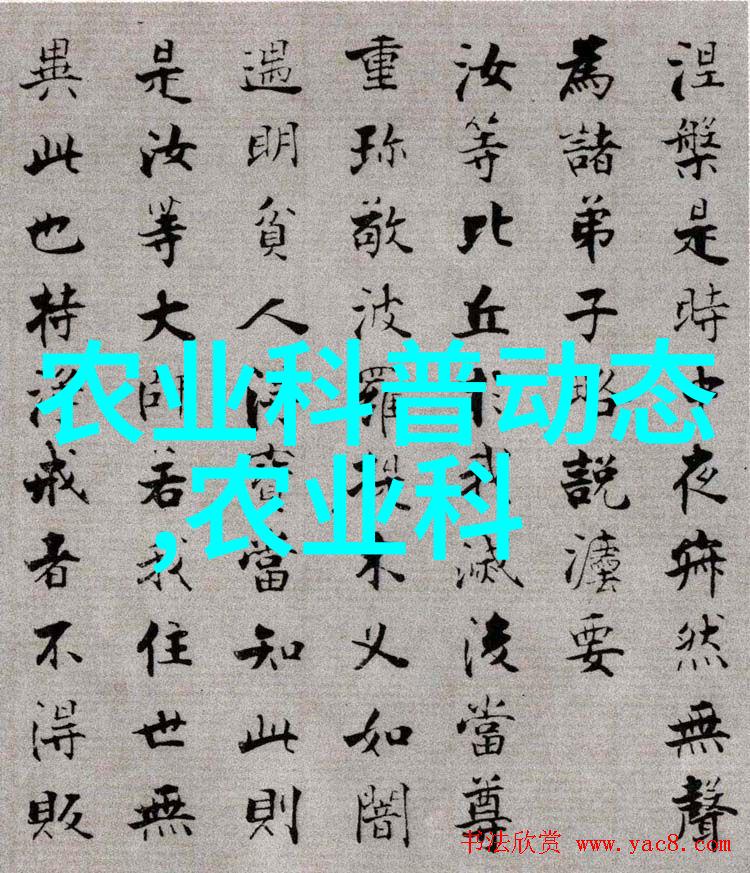 涅槃是時中夜寂然無聲
為諸弟子略說灋要
汝等比丘於我滅後當尊
重珍敬波羅提木叉如闇
遇明貧人得寶當知此則
是汝等大師若我住世無
異此也持淨戒者不得販
农业科普动态
,农业科
书法欣赏 www.yac8.com